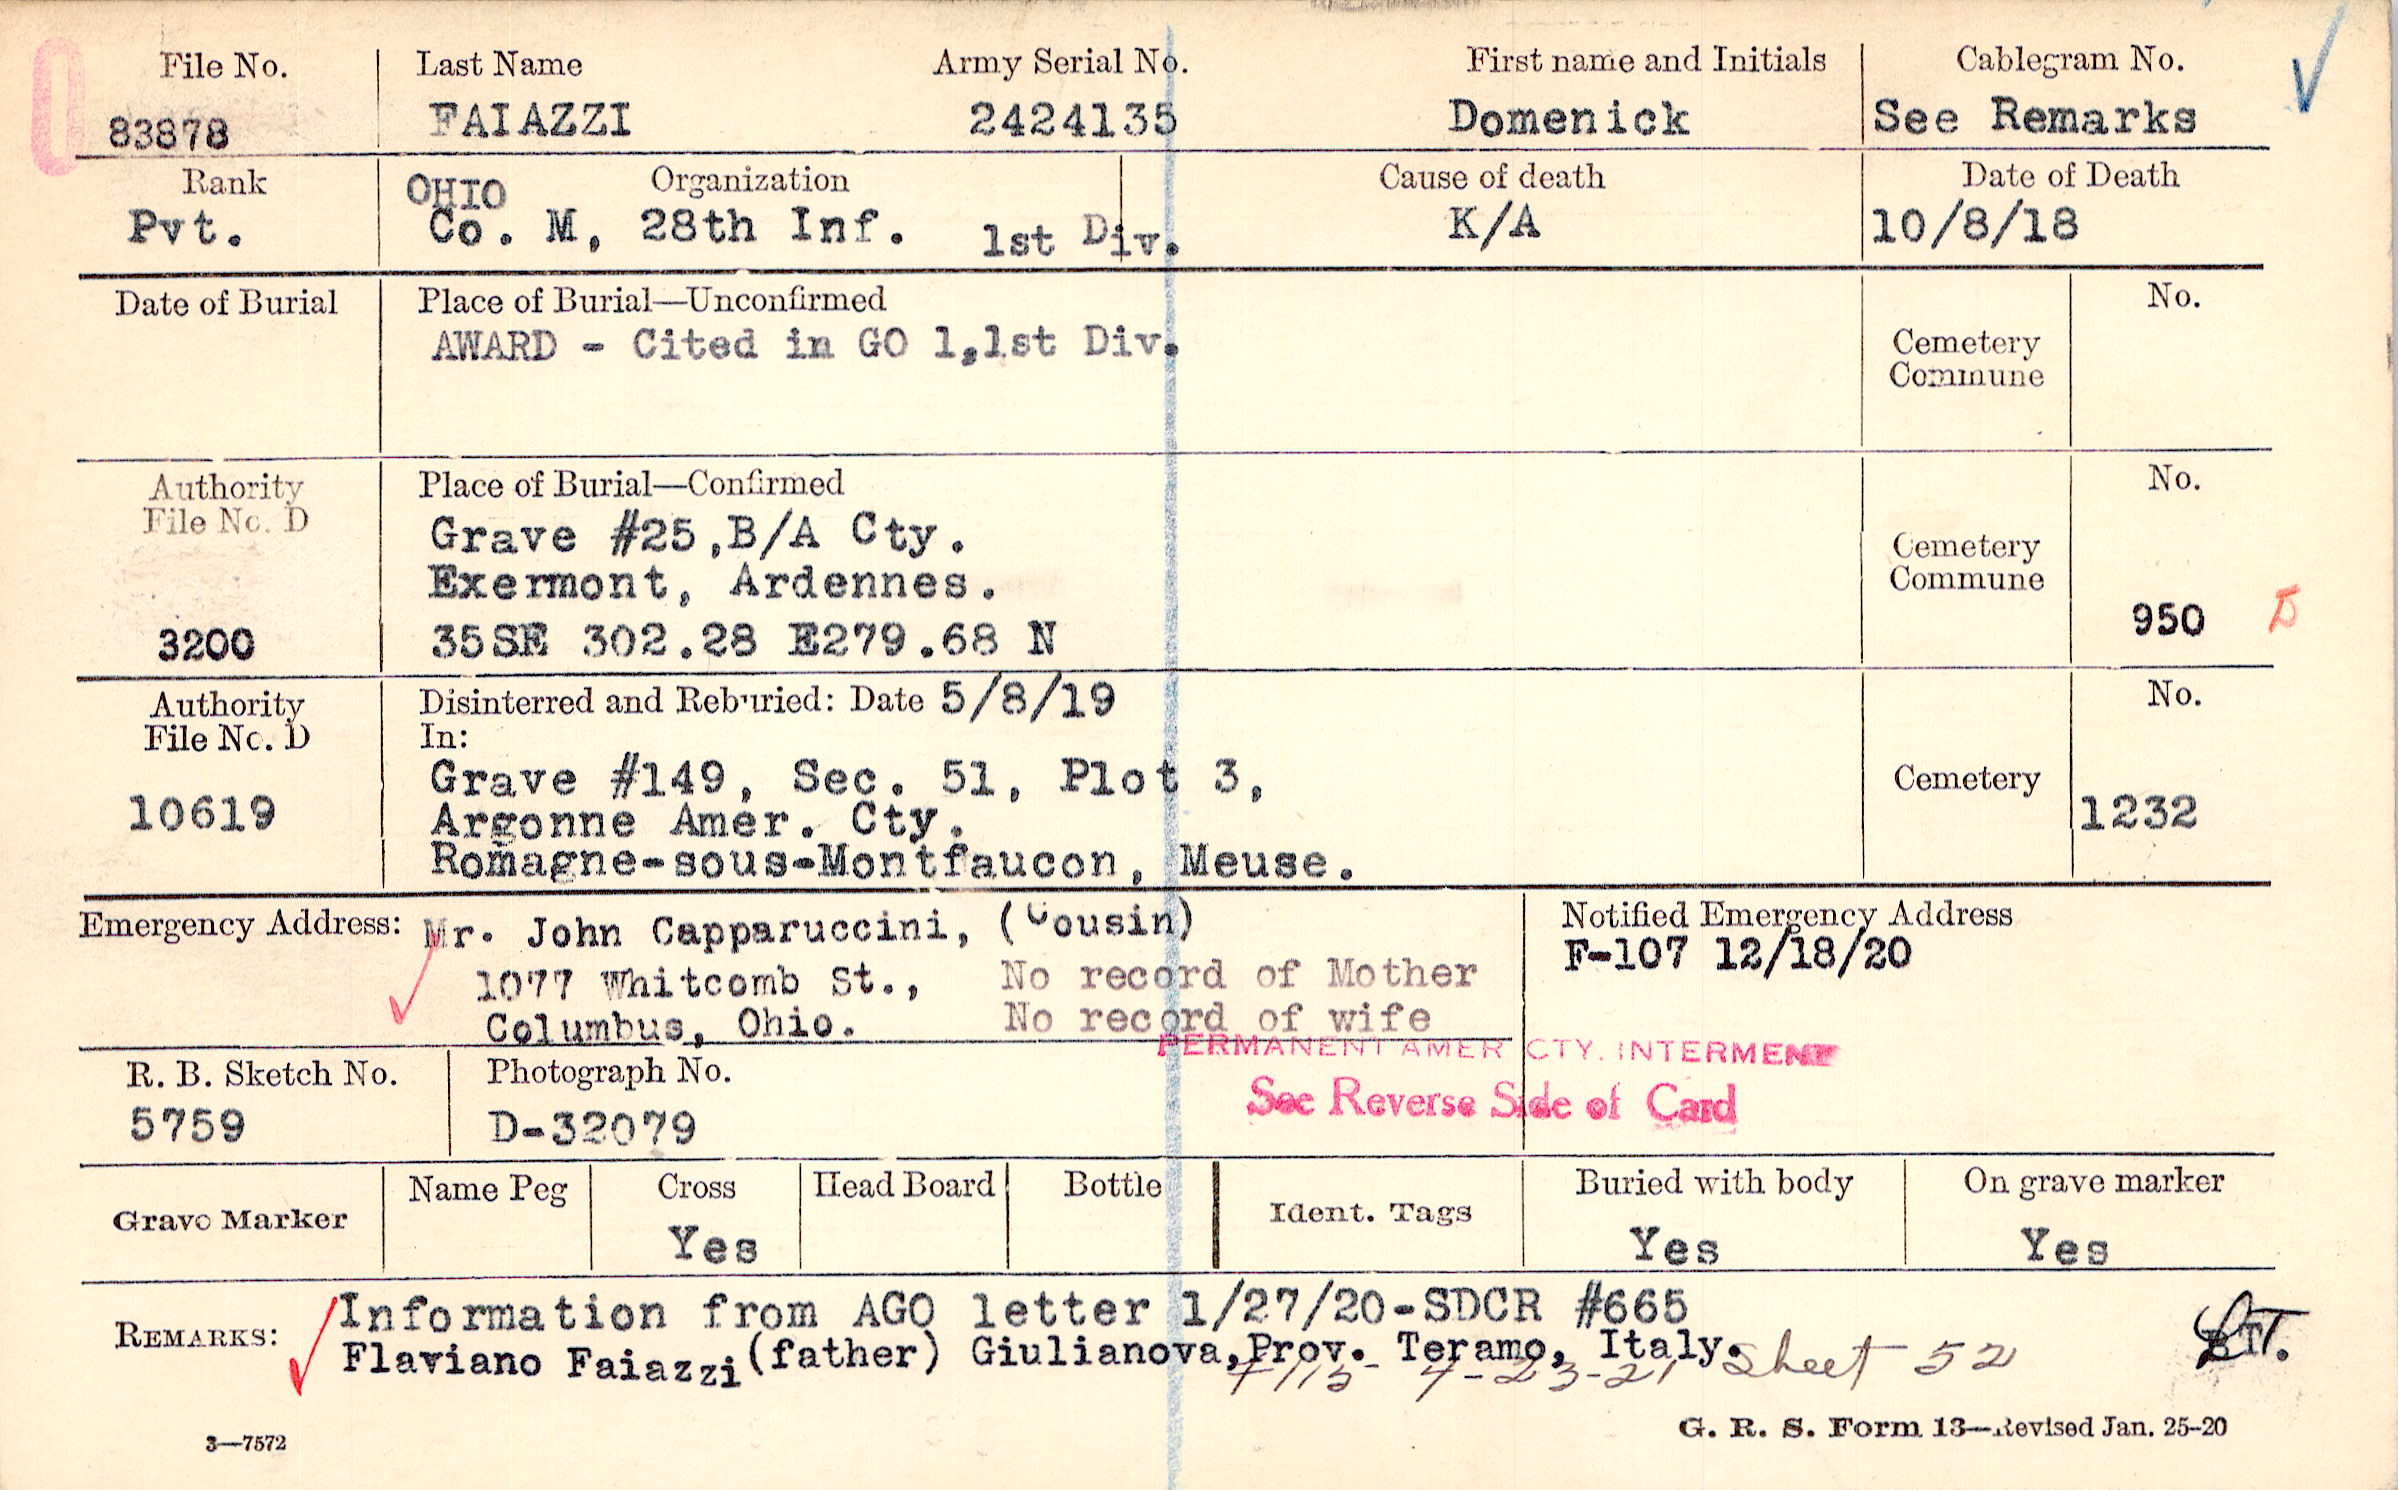 File No. Last Name Army Serial No. First name and Initials Cablegram No.
83878 FAIAZZI 2424135 Domenick See Remarks
Rank OHIO Organization Cause of death Date of Death
Pvt. Co. M, 28th Inf. 1st Div. K/A 10/8/18
Date of Burial Place of Burial—Unconfirmed No.
AWARD - Cited in GO 1,1st Div.
Cemetery
Commune
Authority Place of Burial—Confirmed No.
File No. D
Grave #25,B/A Cty.
Cemetery
Exermont, Ardennes.
Commune
3200 35SE 302.28 E279.68 N 950 D
Authority Disinterred and Reburied: Date 5/8/19 No.
File No. D In:
Grave #149, Sec. 51, Plot 3, Cemetery
10619 Argonne Amer. Cty. 1232
Romagne-sous-Montfaucon, Meuse.
Emergency Address: Mr. John Capparuccini, (Cousin) Notified Emergency Address
F-107 12/18/20
1077 Whitcomb St., No record of Mother
Columbus, Ohio. No record of wife
PERMANENT AMER CTY. INTERMENT
R. B. Sketch No. Photograph No. See Reverse Side of Card
5759 D-32079
Name Peg Cross Head Board Bottle Buried with body On grave marker
Grave Marker Ident. Tags
Yes Yes Yes
REMARKS: Information from AGO letter 1/27/20-SDCR #665
Flaviano Faiazzi (father) Giulianova,Prov. Teramo, Italy.
4-23-21 Sheet 52
3—7572 G. R. S. Form 13—Revised Jan. 25-20